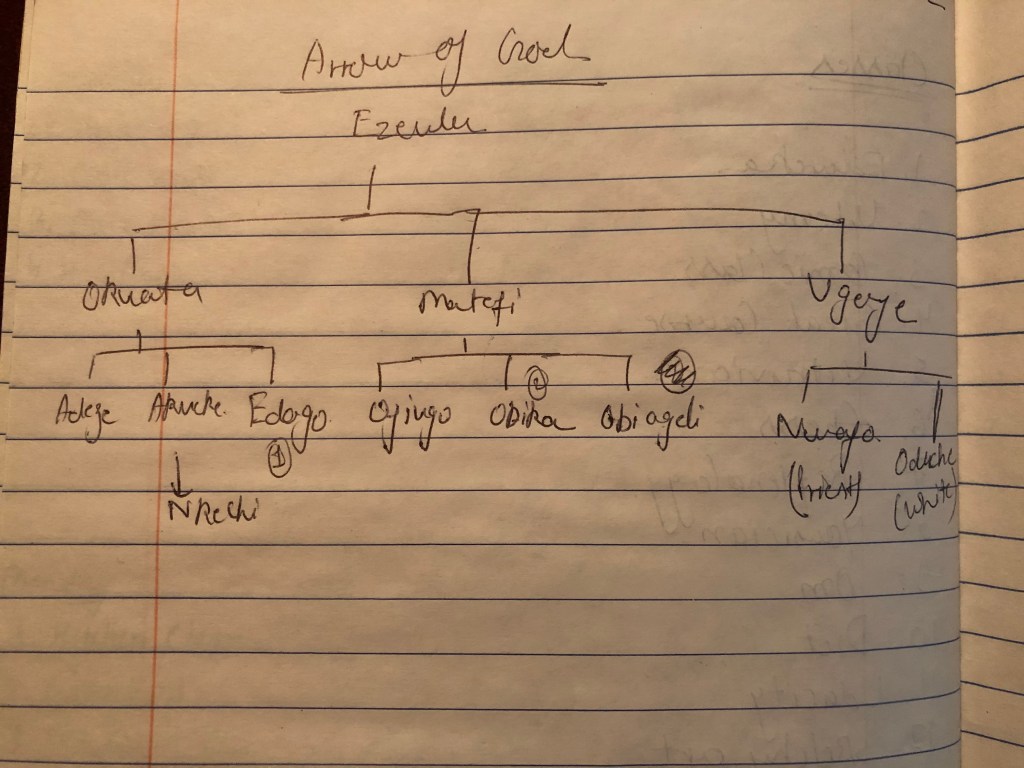 Arrow of God
Ezeulu
Okuata Matefi Ugoye
Adeze Akueke Edogo Ojiugo Obika Obiageli Nwafo Oduche
① ②
(Priest) (White)
Nkechi